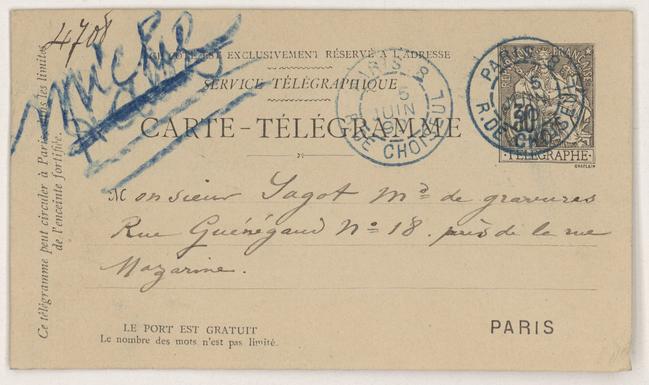 4708
CE CÔTÉ EST EXCLUSIVEMENT RÉSERVÉ À L'ADRESSE
SERVICE TÉLÉGRAPHIQUE
CARTE-TÉLÉGRAMME
PARIS 8
5
JUIN
R. DE CHOISEUL
PARIS 8
5
R. DE CHOISEUL
FRANÇAISE
30
TÉLÉGRAPHE
CHAPLAIN
Monsieur Sagot Md de gravures
Rue Guénégaud No 18. près de la rue
Mazarine.
Ce télégramme peut circuler à Paris, dans les limites
de l'enceinte fortifiée.
LE PORT EST GRATUIT
Le nombre des mots n'est pas limité.
PARIS